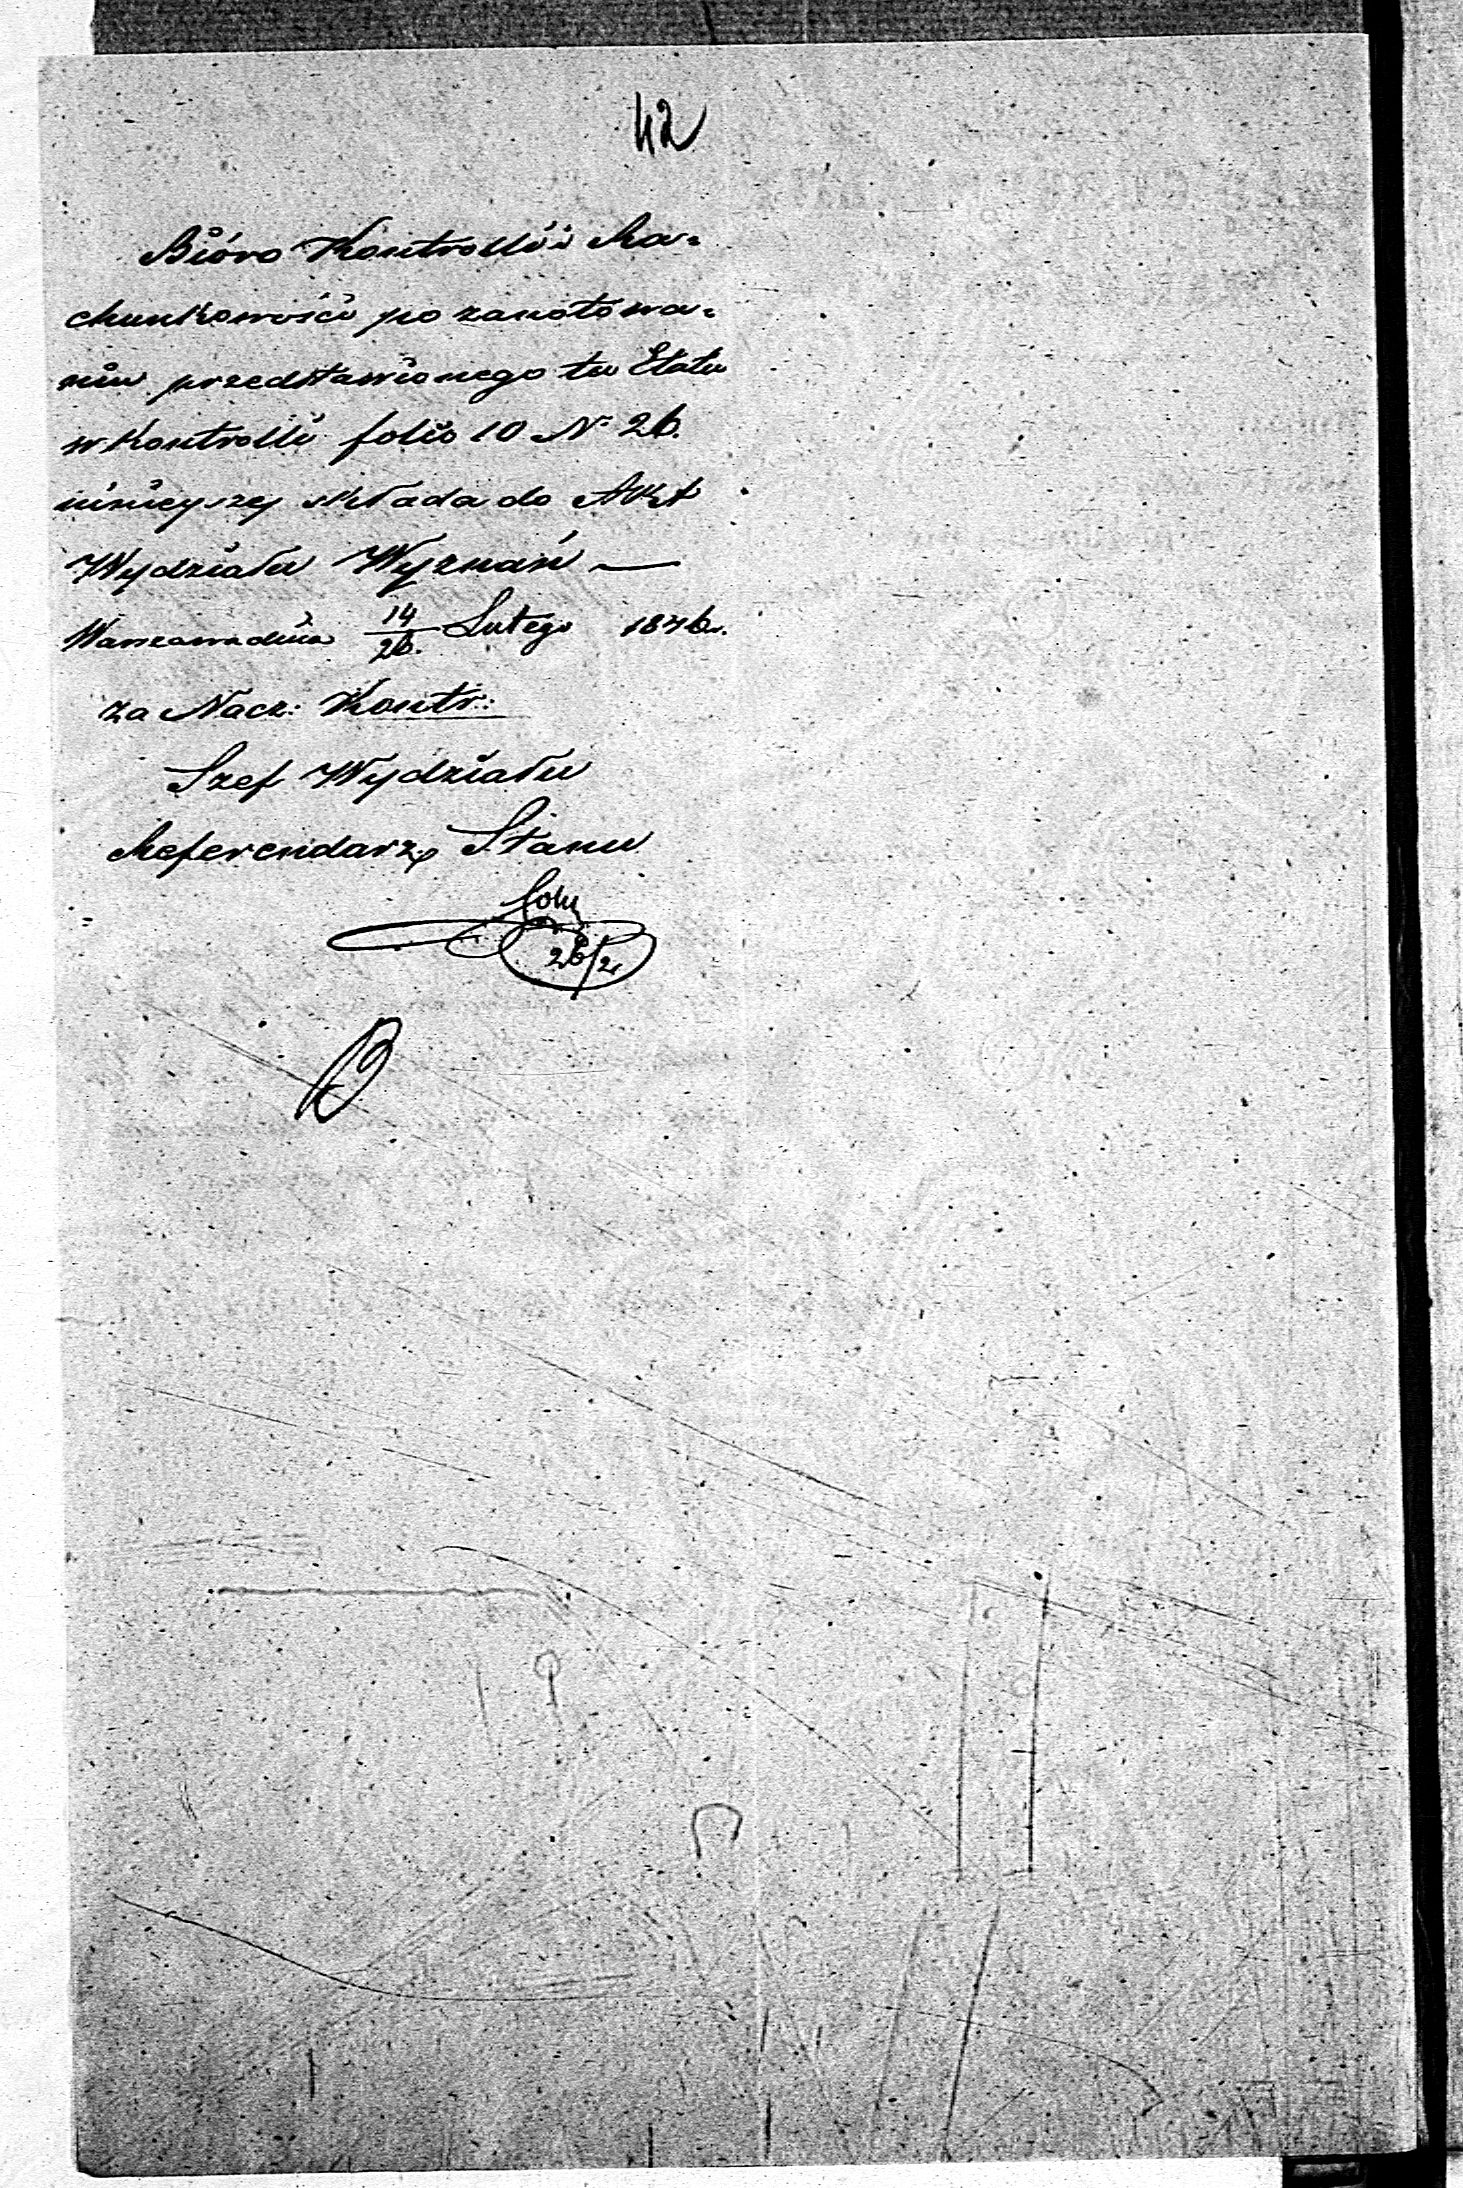 42
Bióro Kontrolli i Ra=
chunkowości po zanotowa=
niu przedstawionego tu Etatu
w Kontrolli folio 10 N° 26.
niniejszej składa do Akt
Wydziału Wyznań —
Warszawa dnia 14/26. Lutego 1846.
za Nacz: Kontr:
Szef Wydziału
Referendarz Stanu
26/2